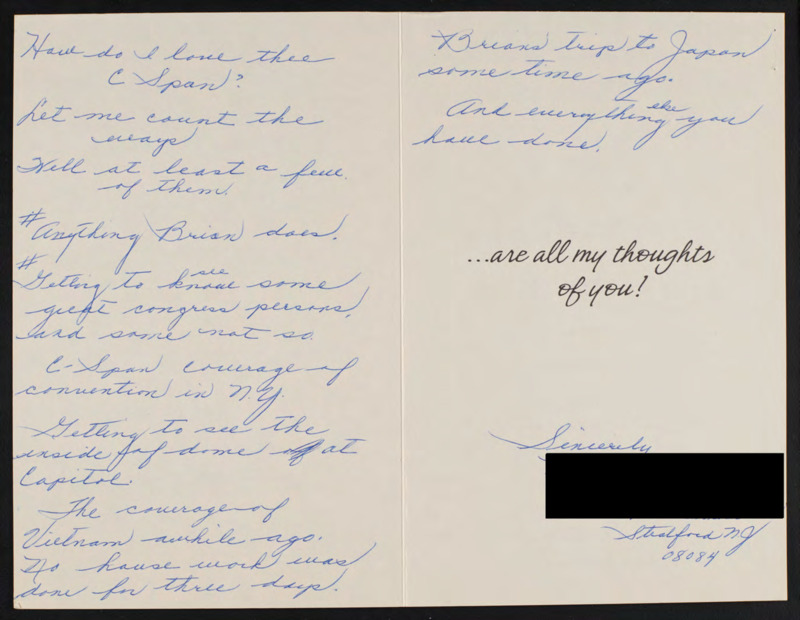 How do I love thee
C Span?
Let me count the
ways
Well at least a few
of them.
# Anything Brian does.
# Getting to know see some
great congress persons,
and some not so.
C-Span coverage of
convention in N.Y.
Getting to see the
inside of dome at
Capitol.
The coverage of
Vietnam awhile ago.
No house work was
done for three days.
Brians trip to Japan
some time ago.
And everything else you
have done.
...are all my thoughts
of you!
Sincerely
Stratford NJ
08084